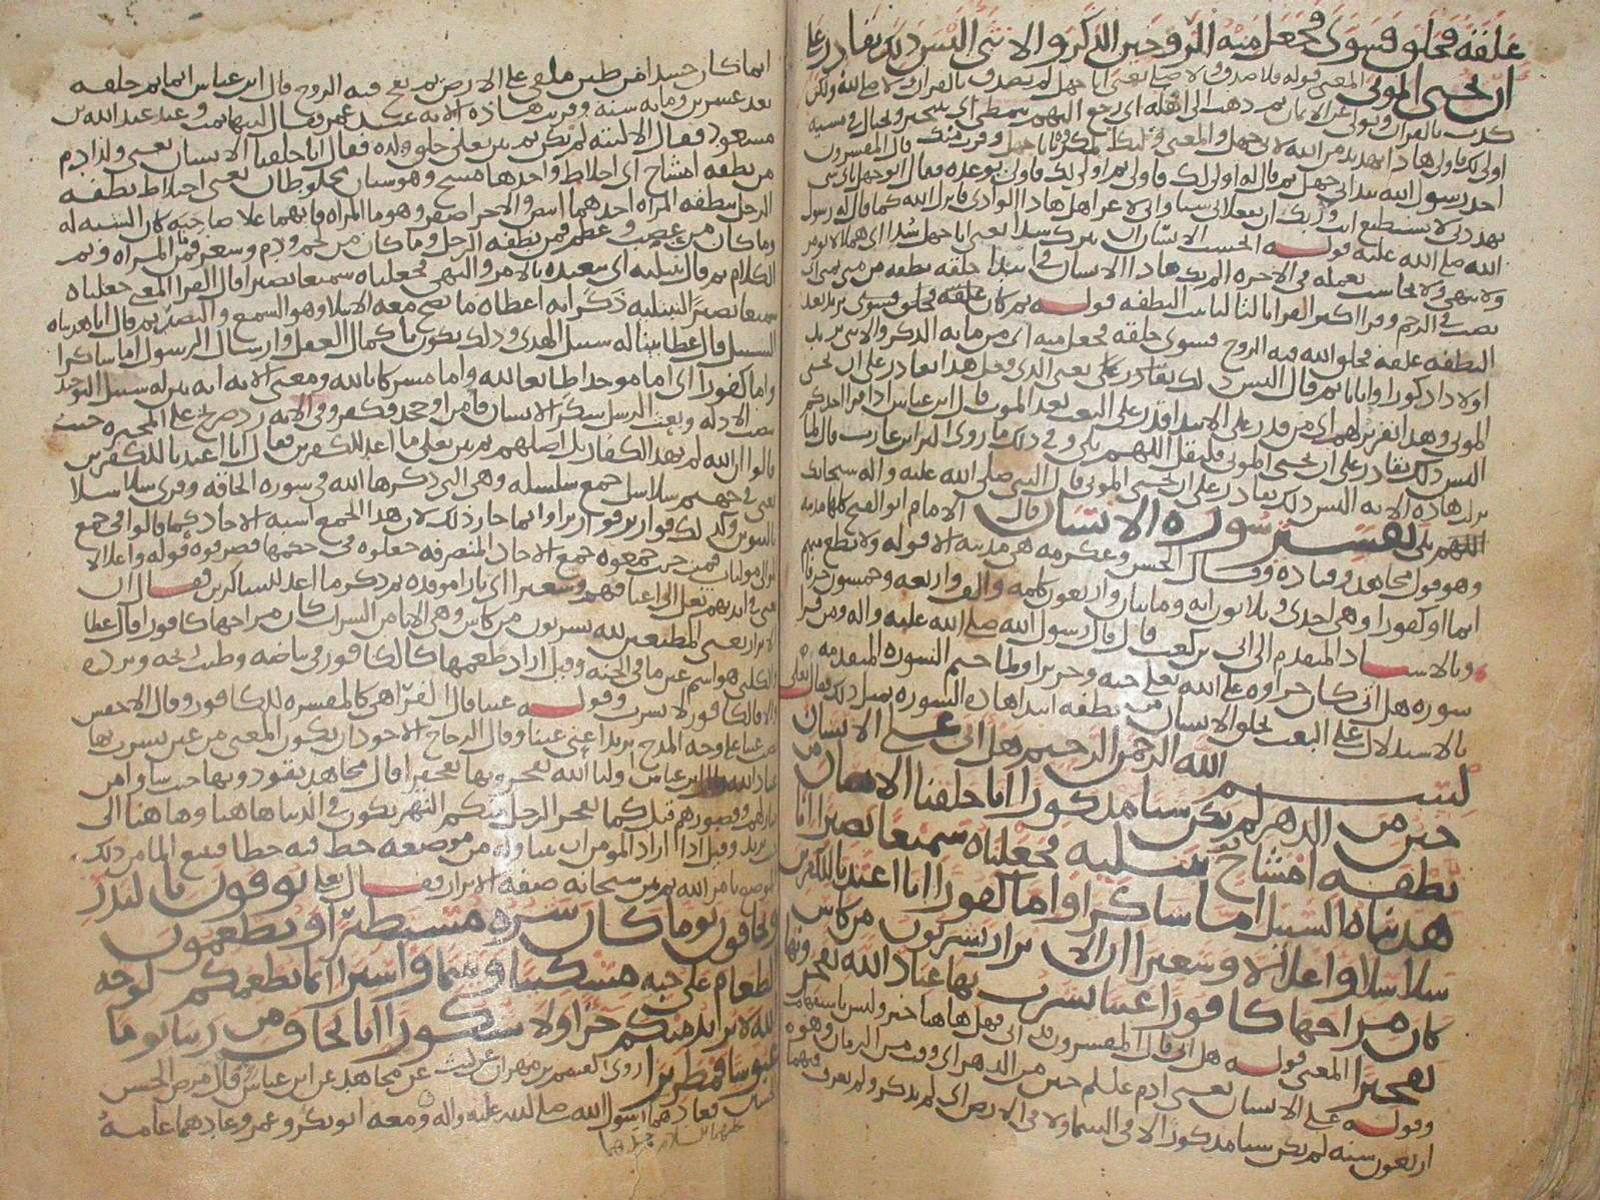 علقة فخلق فسوى فجعل منه الزوجين الذكر والانثى اليس ذلك بقادر على
ان يحيى الموتى المعنى قوله فلا صدق ولا صلى يعنى ابا جهل لم يصدق بالقران ولا صلى لله ولكن
كذب بالقران وتولى عن الايمان ثم ذهب الى اهله اى رجع اليهم يتمطى اى يتبختر ويختال فى مشيه
اولى لك فاولى هذا تهديد من الله لابى جهل والمعنى
احد رسول الله بيد ابى جهل ثم قال له اولى لك فاولى ثم اولى لك فاولى
تهددنى لا تستطيع انت وربك ان تفعلا بى شيا وانى لاعز اهل هذا الوادى فانزل الله كما قال له رسول
الله صلى الله عليه قوله ايحسب الانسان ان يترك سدا يعنى ابا جهل سدا اى هملا لا يومر
ولا ينهى ولا يحاسب بعمله فى الاخره الم يك هذا الانسان فى ابتدا خلقه نطفه من منى يمنى اى
تصب فى الرحم قوله ثم كان علقة فخلق فسوى يريد بعد
النطفه علقه فخلق الله فيه الروح فسوى خلقه فجعل منه اى من مايه الذكر والانثى يريد
اولادا ذكورا واناثا ثم قال اليس ذلك بقادر على يعنى الذى فعل هذا بقادر على ان يحيى
الموتى وهذا تقرير لهم اى من قدر على الابتدا قدر على البعث بعد الموت قال ابن عباس اذا قرا احدكم
اليس ذلك بقادر على ان يحيى الموتى فليقل اللهم بلى وفى ذلك ما روى البرا بن عازب قال لما
نزلت هذه الايه اليس ذلك بقادر على ان يحيى الموتى قال النبى صلى الله عليه واله سبحانك
اللهم بلى تفسير سورة الانسان قال الامام ابو الفتح كلها مدنيه
وهو قول مجاهد وقتاده وقال الحسن وعكرمه هى مدنيه الا قوله ولا تطع منهم
اثما او كفورا وهى احدى وثلاثون ايه ومايتان واربعون كلمه والف واربعه وخمسون حرفا
وبالاسناد المتقدم الى ابى بن كعب قال قال رسول الله صلى الله عليه واله ومن قرا
سورة هل اتى كان جزاوه على الله تعالى جنه وحريرا ولما ختم السوره المتقدمه
بالاستدلال على البعث بخلق الانسان من نطفه ابتدا هذه السوره بمثل ذلك فقال تعالى
بسم الله الرحمن الرحيم هل اتى على الانسان
حين من الدهر لم يكن شيا مذكورا انا خلقنا الانسان من
نطفه امشاج نبتليه فجعلناه سميعا بصيرا انا
هديناه السبيل اما شاكرا واما كفورا انا اعتدنا للكفرين
سلاسلا واغلالا وسعيرا ان الابرار يشربون من كاس
كان مزاجها كافورا عينا يشرب بها عباد الله يفجرونها
تفجيرا المعنى قوله هل اتى قال المفسرون قد اتى فهل هاهنا خبر وليس باستفهام
وقوله على الانسان يعنى ادم عليلم حين من الدهر اى وقت من الزمان وهو
اربعون سنه لم يكن شيا مذكورا لا فى السما ولا فى الارض اى لم يذكر ولم يعرف
انما كان جسدا من طين ملقى على الارض ثم نفخ فيه الروح قال ابن عباس انما تم خلقه
بعد عشرين ومايه سنه وقريت هذه الايه عند عمر فقال ليتها تمت وعند عبد الله بن
مسعود فقال الا ليته لم يكن ثم بين تعالى خلق ولده فقال انا خلقنا الانسان يعنى ولد ادم
من نطفه امشاج اى اخلاط واحدها مشج وهو شيان مخلوطان يعنى اختلاط نطفه
الرجل بنطفه المراه احدهما ابيض والاخر اصفر وهو ما المراه فايهما علا صاحبه كان الشبه له
وما كان من عصب وعظم فمن نطفه الرجل وما كان من لحم ودم وشعر فمن المراه وتم
الكلام ثم قال نبتليه اى نتعبده بالامر والنهى فجعلناه سميعا بصيرا قال الفرا المعنى جعلناه
سميعا بصيرا لنبتليه ذكر انه اعطاه ما يصح معه الابتلا وهو السمع والبصر ثم قال انا هديناه
السبيل قال عطا بينا له سبيل الهدى وذلك يكون باكمال العقل وارسال الرسول اما شاكرا
واما كفورا اى اما موحدا طايعا لله واما مشركا بالله ومعنى الايه انه بين له سبيل التوحيد
بنصب الادله وبعث الرسل شكر الانسان فامن او جحد فكفر وفى الايه رد صريح على المجبره حيث
قالوا ان الله لم يهد الكفار بل اضلهم ثم بين تعالى ما اعد للكفرين فقال انا اعتدنا للكفرين
يعنى فى جهنم سلاسل جمع سلسله وهى التى ذكرها الله فى سوره الحاقه وقرى سلاسلا
بالتنوين وكذلك قواريرا قواريرا وانما جاز ذلك لان هذا الجمع اشبه الاحاد كما قالوا فى جمع
حيث جمعوه جمع الاحاد المنصرفه جعلوه فى حكمها فصرفوه قوله واغلالا
يعنى فى ايديهم تغل الى اعناقهم وسعيرا اى نارا موقده ثم ذكر ما اعد للشاكرين فقال ان
الابرار يعنى المطيعين لله يشربون من كاس وهى الانا من الشراب كان مزاجها كافورا قال عطا
والكلبى هو اسم عين ما فى الجنه وقيل اراد طعمها كالكافور فى بياضه وطيب ريحه وبرده
لان الكافور لا يشرب وقوله عينا قال الفرا هى كالمفسره للكافور وقال الاخفش
نصب عينا على وجه المدح يريد اعنى عينا وقال الزجاج الاجود ان يكون المعنى من عين يشرب بها
عباد الله قال ابن عباس اوليا الله يفجرونها تفجيرا قال مجاهد يقودونها حيث شاوا من
منازلهم وقصورهم قيل كما يفجر الرجل منكم النهر يكون فى الدنيا هاهنا وهاهنا الى
حيث يريد وقيل اذا اراد المومن ان
ثم بين سبحانه صفة الابرار فقال تعالى يوفون بالنذر
ويخافون يوما كان شره مستطيرا ويطعمون
الطعام على حبه مسكينا ويتيما واسيرا انما نطعمكم لوجه
الله لا نريد منكم جزا ولا شكورا انا نخاف من ربنا يوما
عبوسا قمطريرا روى القسم بن مهران عن ليث عن مجاهد عن ابن عباس قال مرض الحسن
والحسين فعادهما رسول الله صلى الله عليه واله ومعه ابو بكر وعمر وعادهما عامة
عليهما السلام